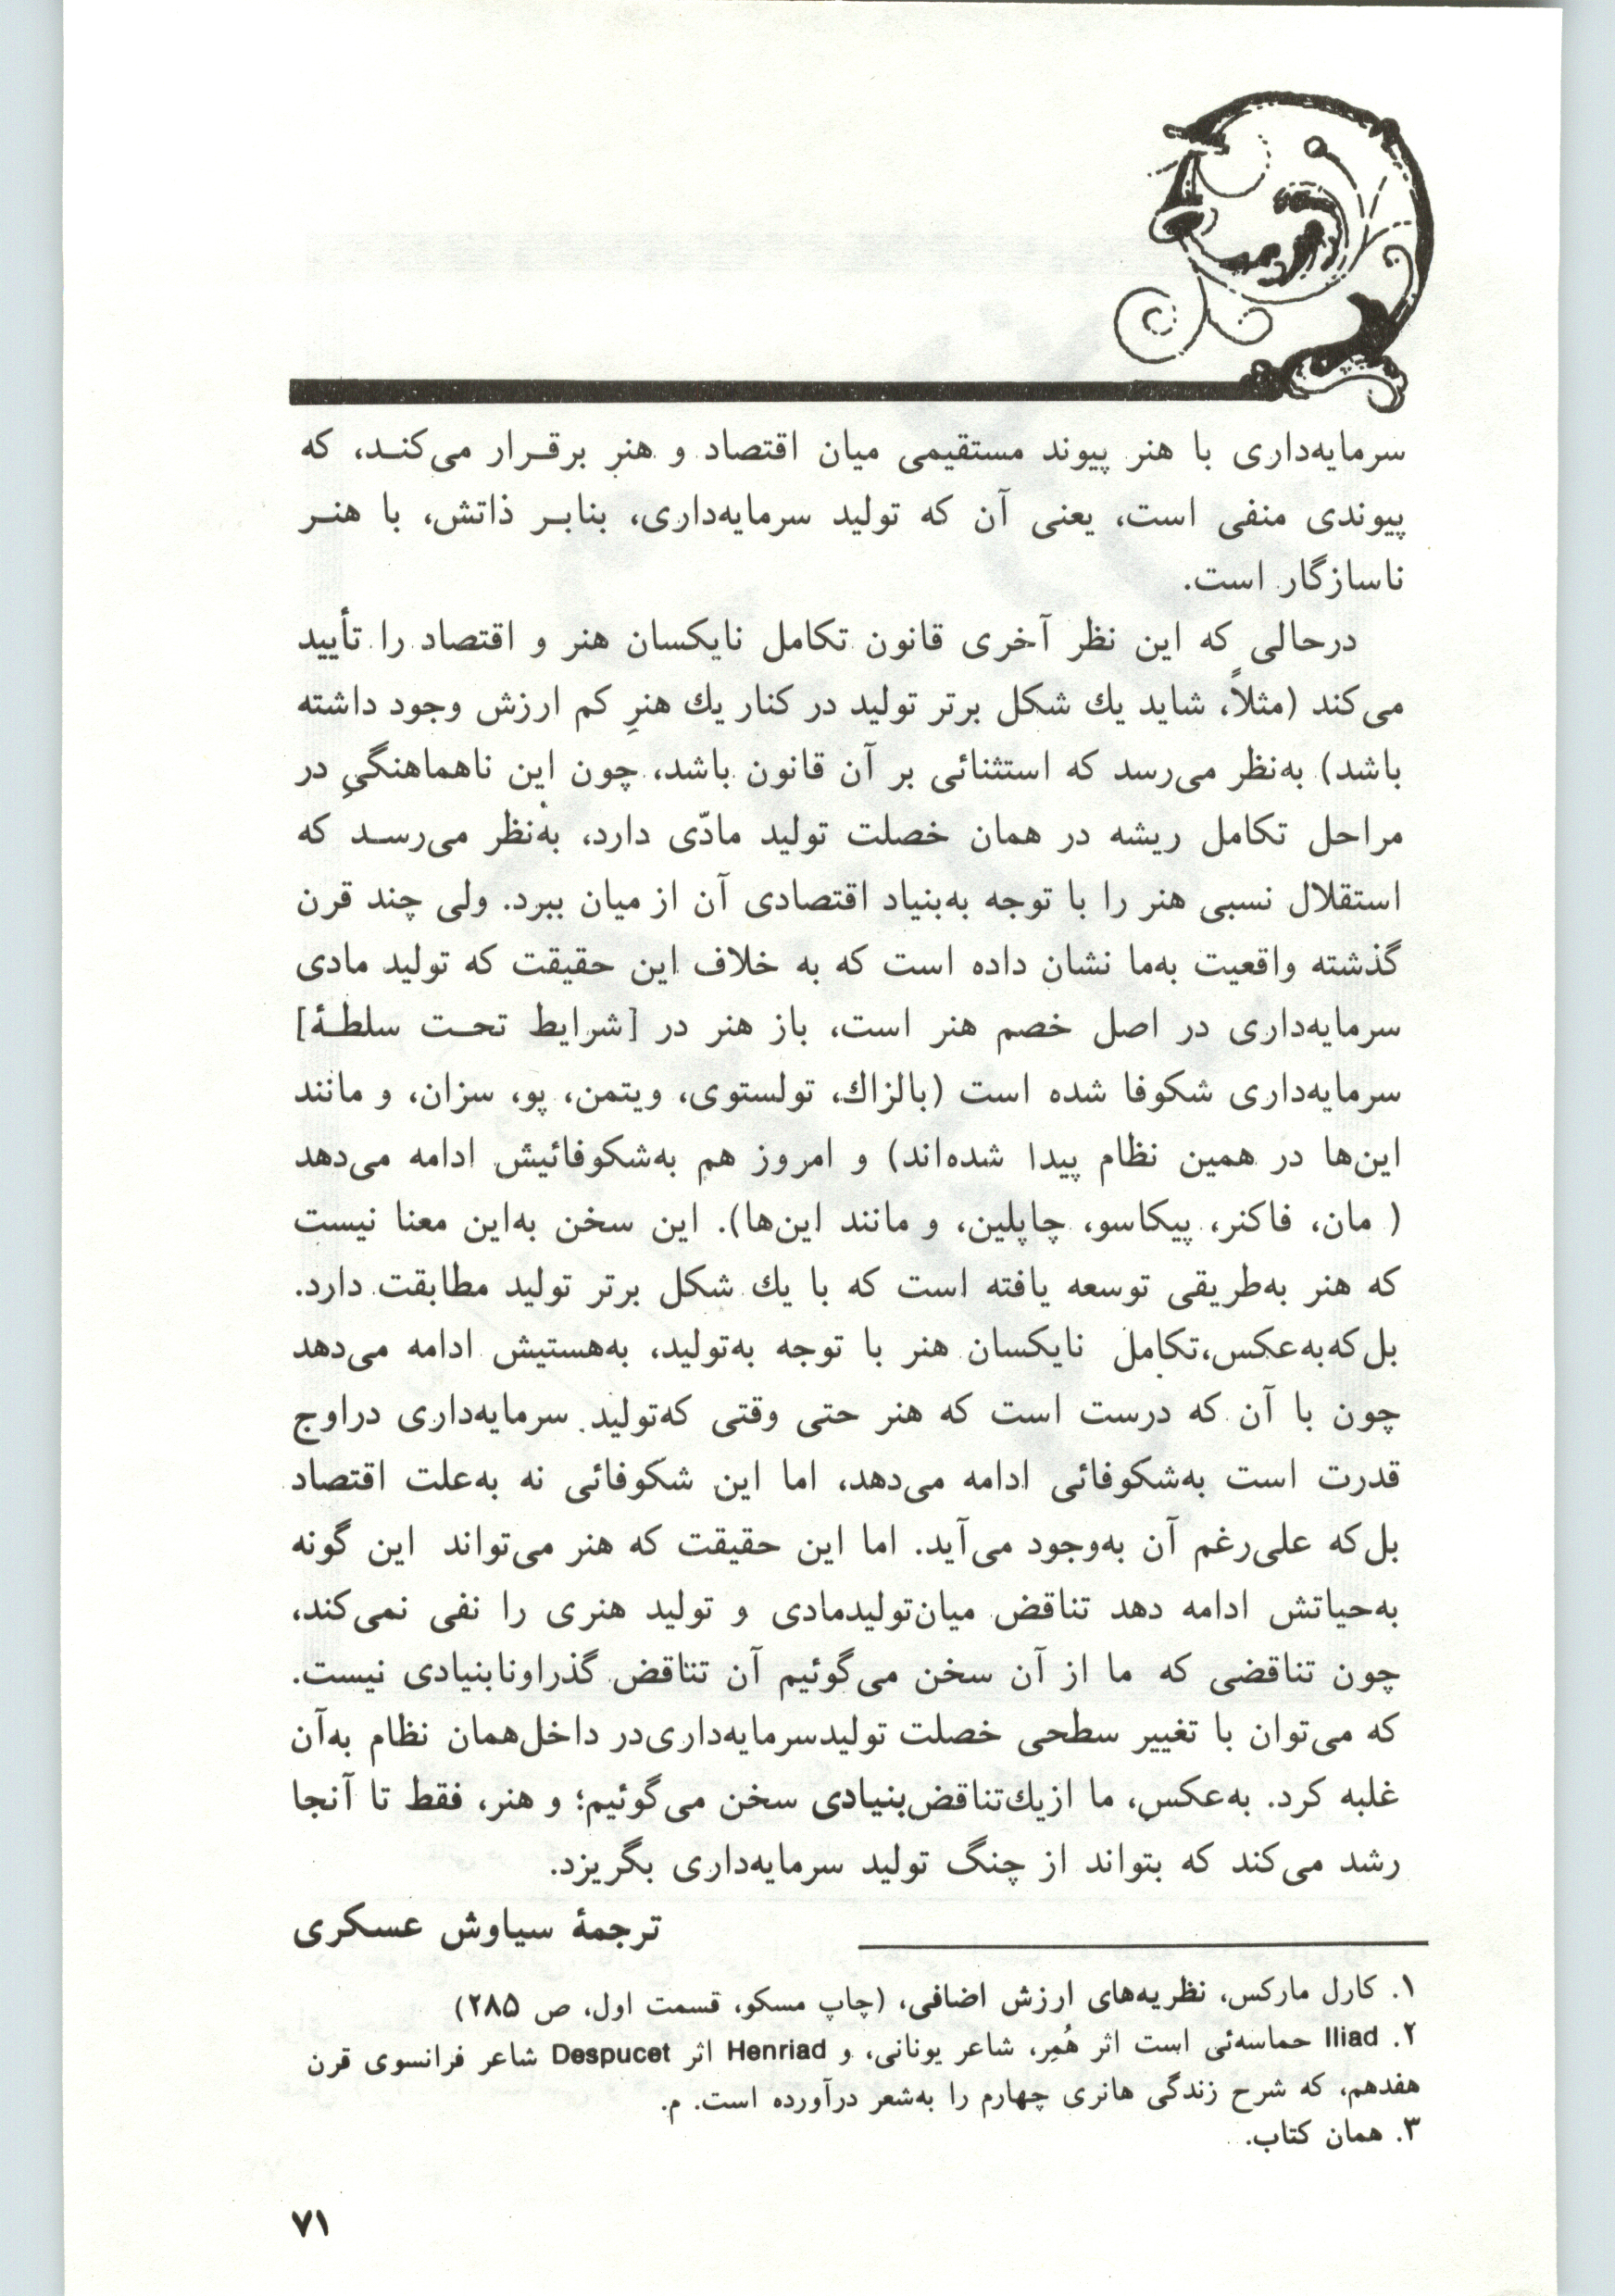 سرمایه‌داری با هنر پیوند مستقیمی میان اقتصاد و هنر برقـرار می‌کنـد، که
پیوندی منفی است، یعنی آن که تولید سرمایه‌داری، بنابـر ذاتش، با هنـر
ناسازگار است.
درحالی که این نظر آخری قانون تکامل نایکسان هنر و اقتصاد را تأیید
می‌کند (مثلاً، شاید یك شکل برتر تولید در کنار یك هنرِ کم ارزش وجود داشته
باشد) به‌نظر می‌رسد که استثنائی بر آن قانون باشد، چون این ناهماهنگیِ در
مراحل تکامل ریشه در همان خصلت تولید مادّی دارد، به‌نظر می‌رسـد که
استقلال نسبی هنر را با توجه به‌بنیاد اقتصادی آن از میان ببرد. ولی چند قرن
گذشته واقعیت به‌ما نشان داده است که به خلاف این حقیقت که تولید مادی
سرمایه‌داری در اصل خصم هنر است، باز هنر در [شرایط تحـت سلطـهٔ]
سرمایه‌داری شکوفا شده است (بالزاك، تولستوی، ویتمن، پو، سزان، و مانند
این‌ها در همین نظام پیدا شده‌اند) و امروز هم به‌شکوفائیش ادامه می‌دهد
( مان، فاکنر، پیکاسو، چاپلین، و مانند این‌ها). این سخن به‌این معنا نیست
که هنر به‌طریقی توسعه یافته است که با یك شکل برتر تولید مطابقت دارد.
بل‌که‌به‌عکس،تکامل نایکسان هنر با توجه به‌تولید، به‌هستیش ادامه می‌دهد
چون با آن که درست است که هنر حتی وقتی که‌تولید سرمایه‌داری دراوج
قدرت است به‌شکوفائی ادامه می‌دهد، اما این شکوفائی نه به‌علت اقتصاد
بل‌که علی‌رغم آن به‌وجود می‌آید. اما این حقیقت که هنر می‌تواند این گونه
به‌حیاتش ادامه دهد تناقض میان‌تولیدمادی و تولید هنری را نفی نمی‌کند،
چون تناقضی که ما از آن سخن می‌گوئیم آن تناقض گذراونابنیادی نیست.
که می‌توان با تغییر سطحی خصلت تولیدسرمایه‌داری‌در داخل‌همان نظام به‌آن
غلبه کرد. به‌عکس، ما ازیك‌تناقض‌بنیادی سخن می‌گوئیم؛ و هنر، فقط تا آنجا
رشد می‌کند که بتواند از چنگ تولید سرمایه‌داری بگریزد.
ترجمهٔ سیاوش عسکری
۱. کارل مارکس، نظریه‌های ارزش اضافی، (چاپ مسکو، قسمت اول، ص ۲۸۵)
۲. Iliad حماسه‌ئی است اثر هُمِر، شاعر یونانی، و Henriad اثر Despucet شاعر فرانسوی قرن
هفدهم، که شرح زندگی هانری چهارم را به‌شعر درآورده است. م.
۳. همان کتاب.
۷۱